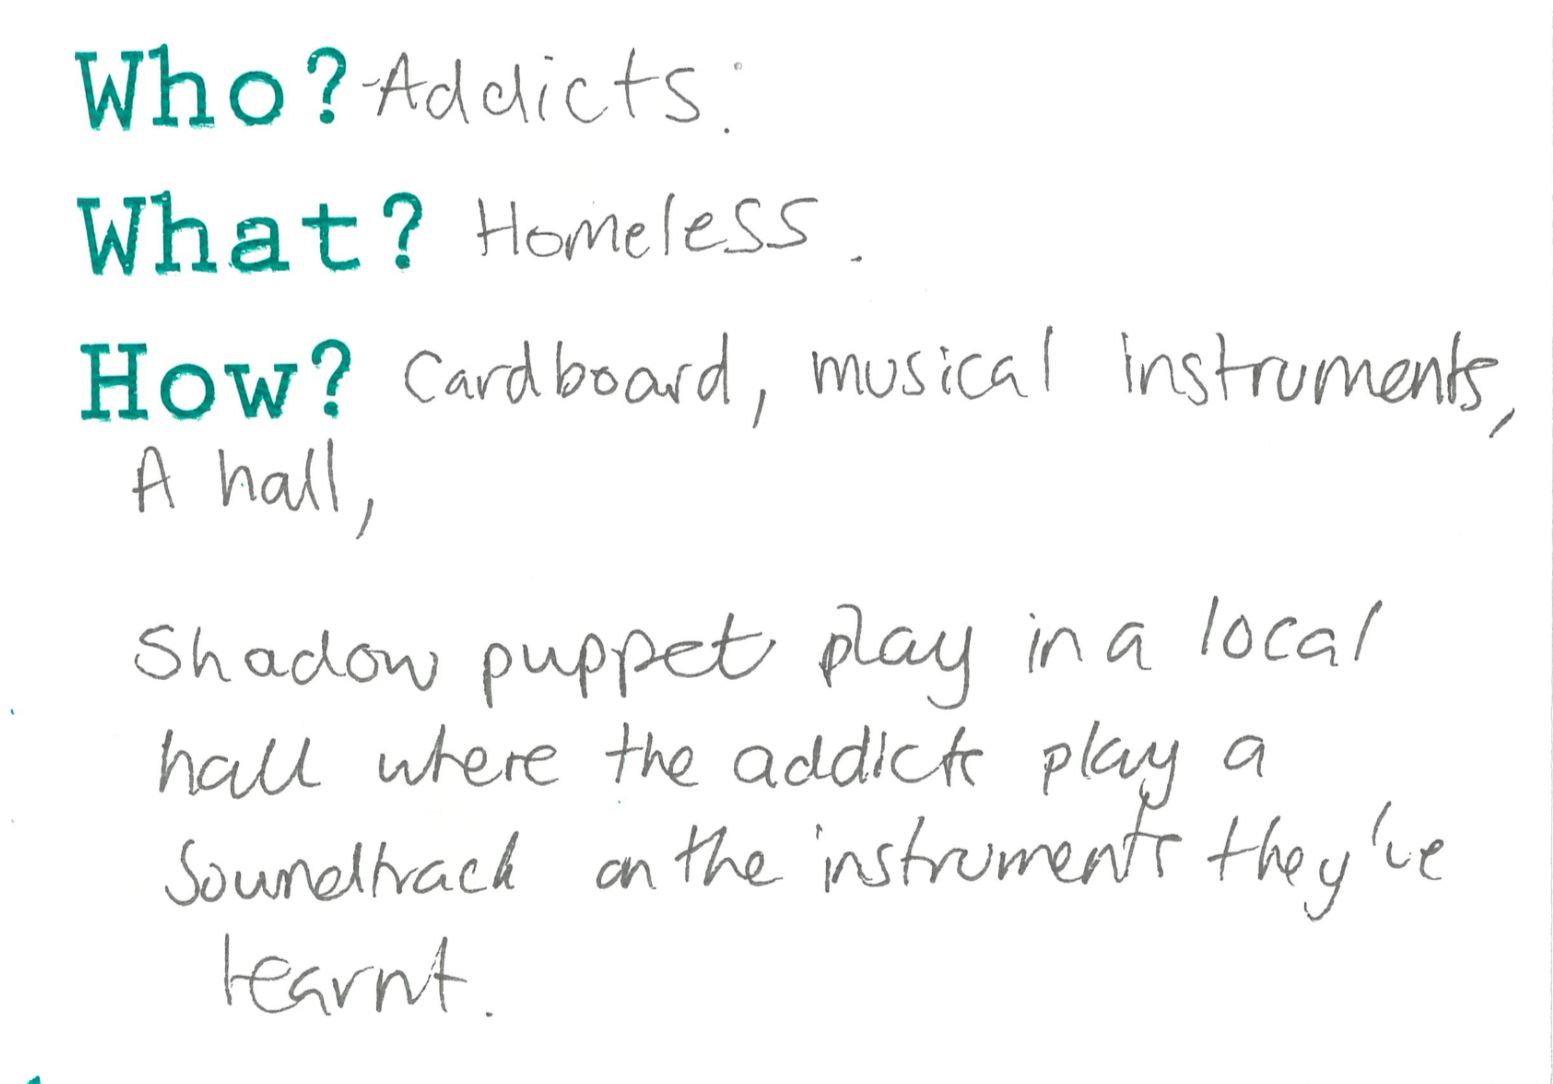 Who? -Addicts.
What? Homeless.
How? Cardboard, musical instruments,
A hall,
Shadow puppet play in a local
hall where the addicts play a
Soundtrack on the instruments they've
learnt.